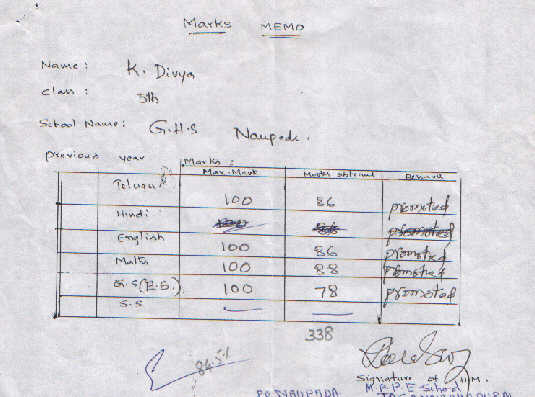 Marks MEMO
Name: K. Divya
Class: 5th
School Name: G.H.S Naupada.
previous year Marks:
Max. Mark Marks obtained Remark
Telugu 100 86 promoted
Hindi promoted
English 100 86 promoted
Maths 100 88 promoted
G.S (E.S.) 100 78 promoted
S.S — —
338
84.5%
Signature of H.M.
M.P.P.E School
PO NAUPADA